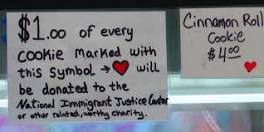 $1.00 of every
cookie marked with
this symbol → ♥ will
be donated to the
National Immigrant Justice Center
or other related, worthy charity.
Cinnamon Roll
Cookie
$4.00
♥